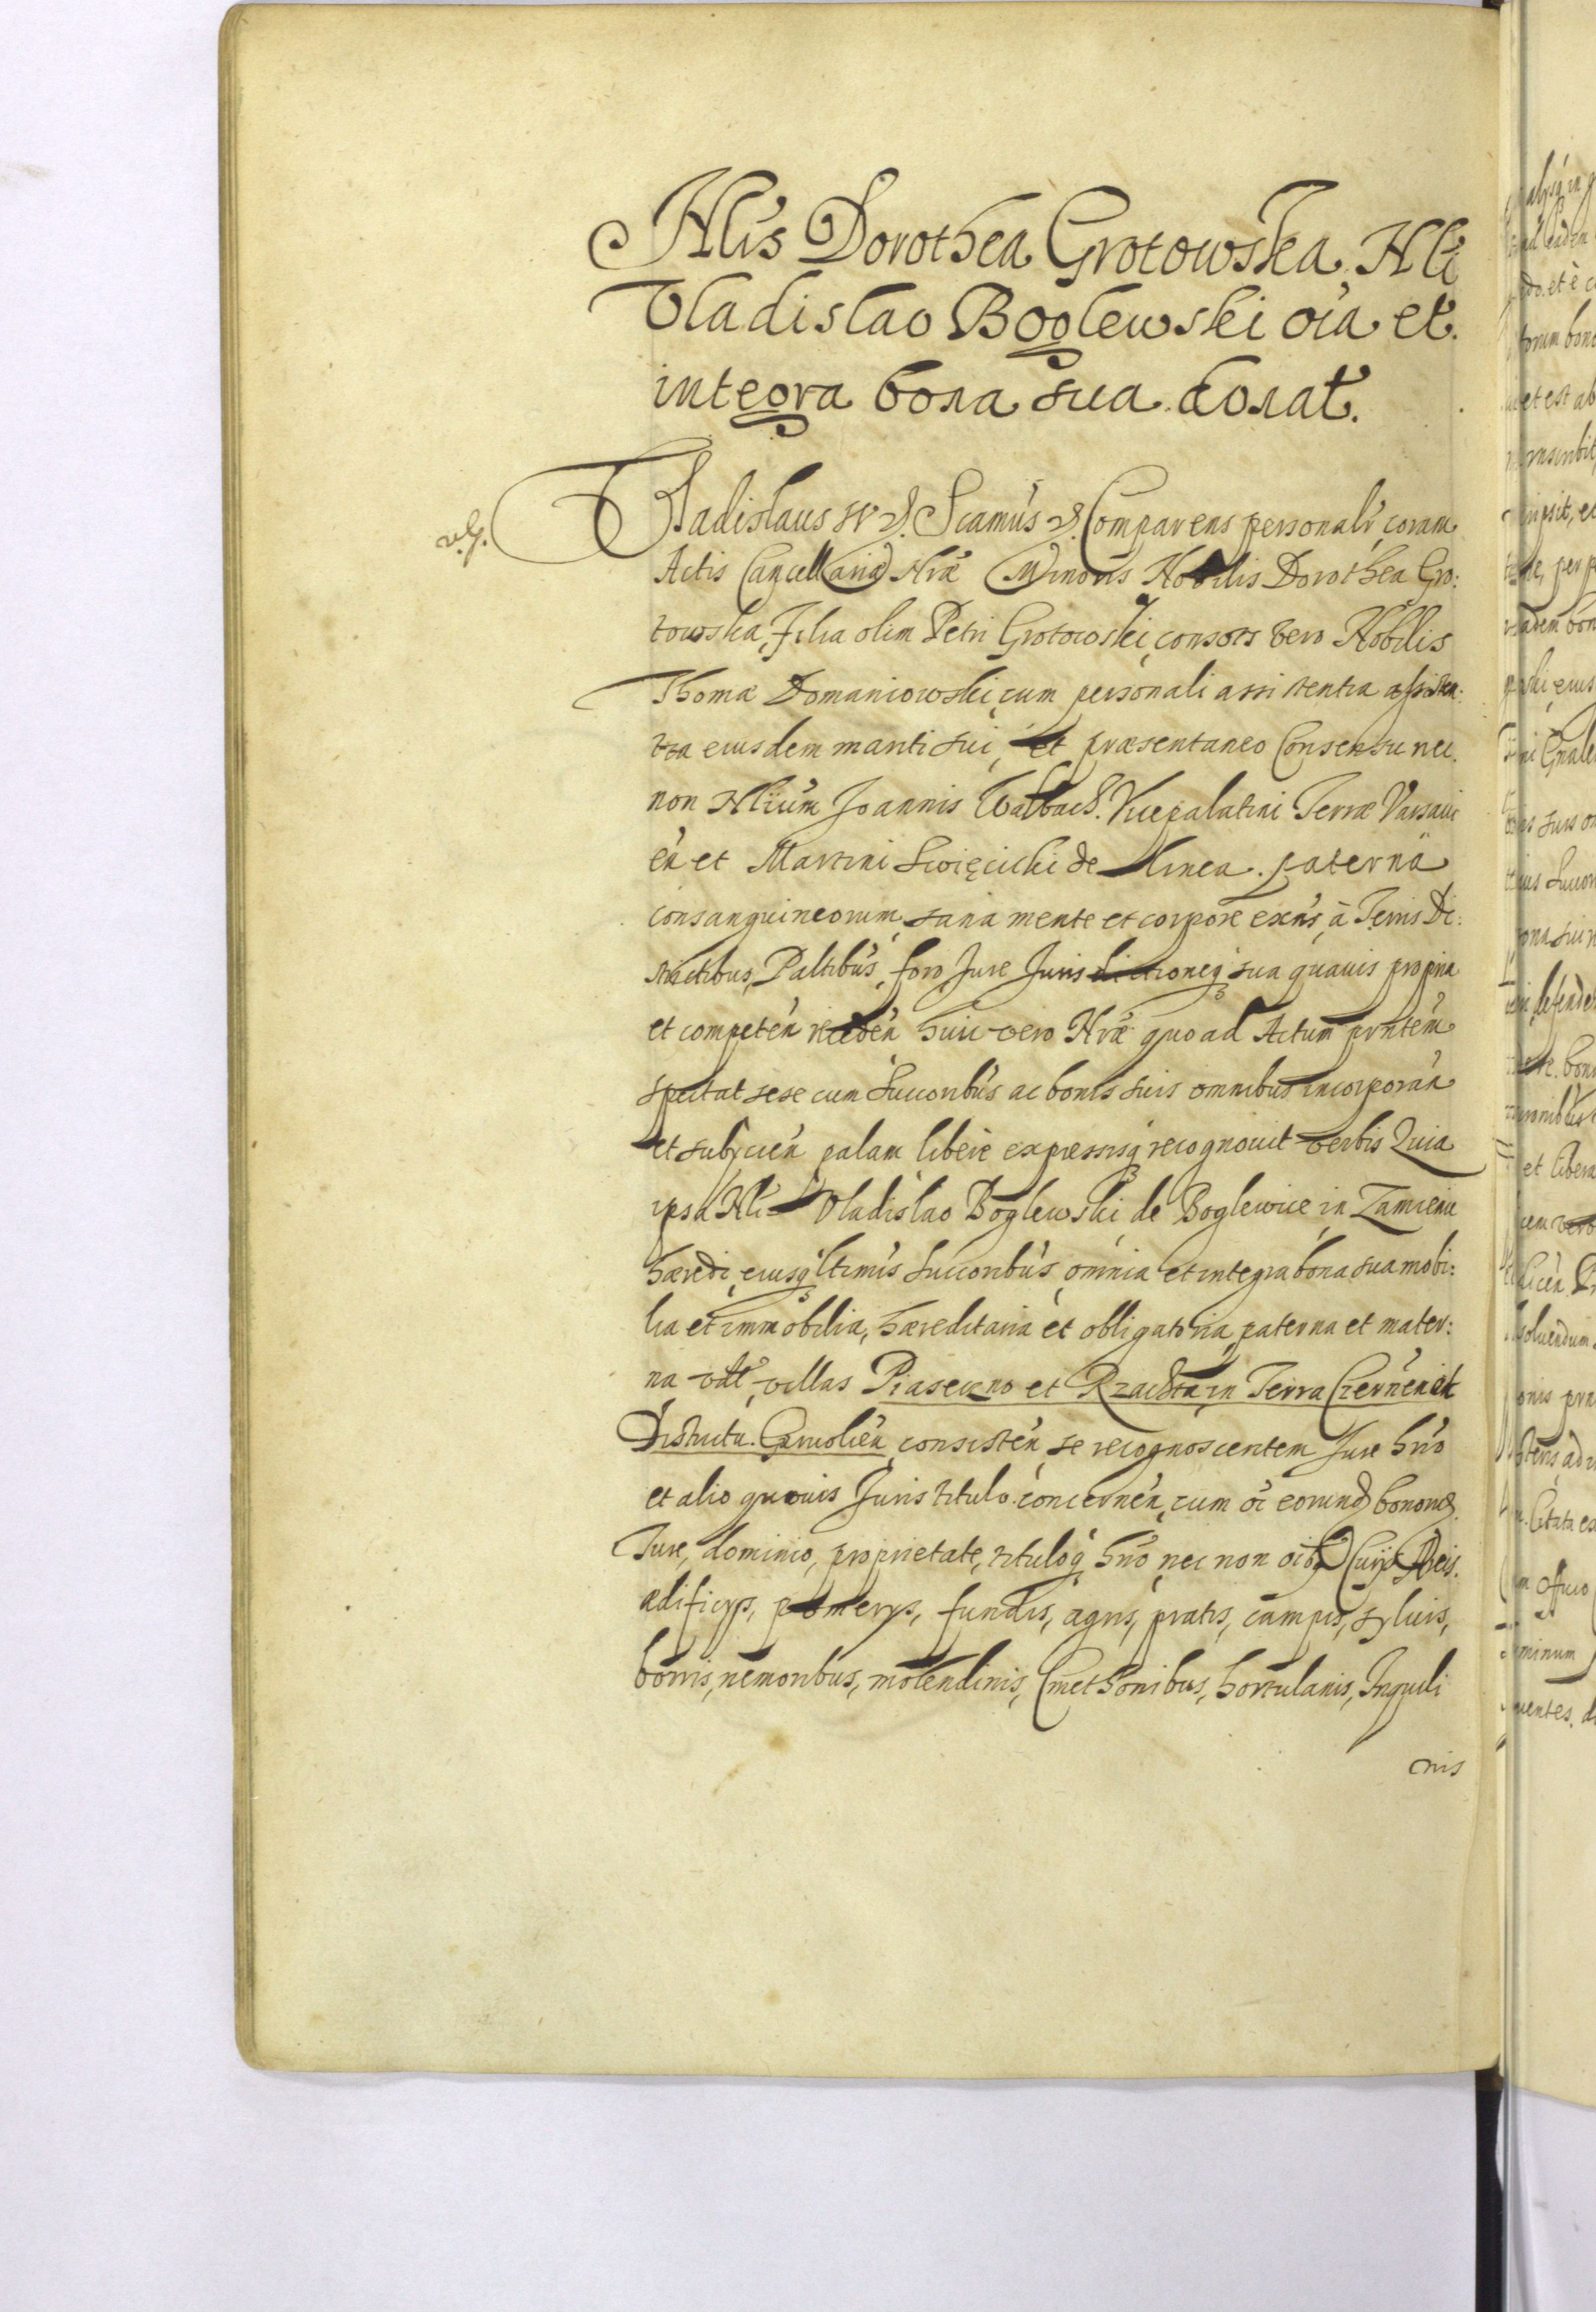 Nlis Dorothea Grotowska Nli
Vladislao Boglewski oia et
integra bona sua donat.
Vladislaus IV &. Scamus &. Comparens personalr coram
Actis Cancellariae Nrae Minoris Nobilis Dorothea Gro:
towska, Filia olim Petri Grotowski, consors vero Nobilis
Thomae Domaniowski, cum personali assistentia assisten:
tia eiusdem mariti sui, et praesentaneo Consensu nec
non Nlium Joannis Walbach Vicepalatini Terrae Varsavi
en et Martini Swięcicki de linea paterna
consanguineorum, sana mente et corpore exns, à Terris Di:
strictibus, Paltibus, foro Jure Jurisdictioneq sua quauis propria
et competen receden huic vero Nrae quo ad Actum prntem
spectat sese cum Succoribus ac bonis suis omnibus incorporan
et subycien palam libere expressisq recognouit verbis Quia
ipsa Nli Vladislao Boglewski de Boglewice in Zamienie
haeredi, eiusq ltimis Succoribus, omnia et integra bona sua mobi:
lia et immobilia, haereditaria et obligatoria, paterna et mater:
na vdt villas Piaseczno et Rzachta in Terra Czernen et
Districtu Garwolien consisten, se recognoscentem Jure hrio
et alio quouis Juris titulo concernen, cum oi eorund bonorum
Jure, dominio, proprietate, tituloq hrio, nec non oibus Curys Areis
aedificys, pomerys, fundis, agris, pratis, campis, syluis,
borris, nemoribus, molendinis, Cmethonibus, hortulanis, Inquili
nis